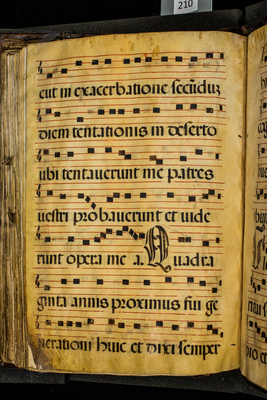 210
cut in exacerbatione secũduz
diem tentationis in deserto
ubi tentauerunt me patres
uestri probauerunt et uide
runt opera me a. Quadra
ginta annis proximus fui ge
nerationi huic et dixi semper